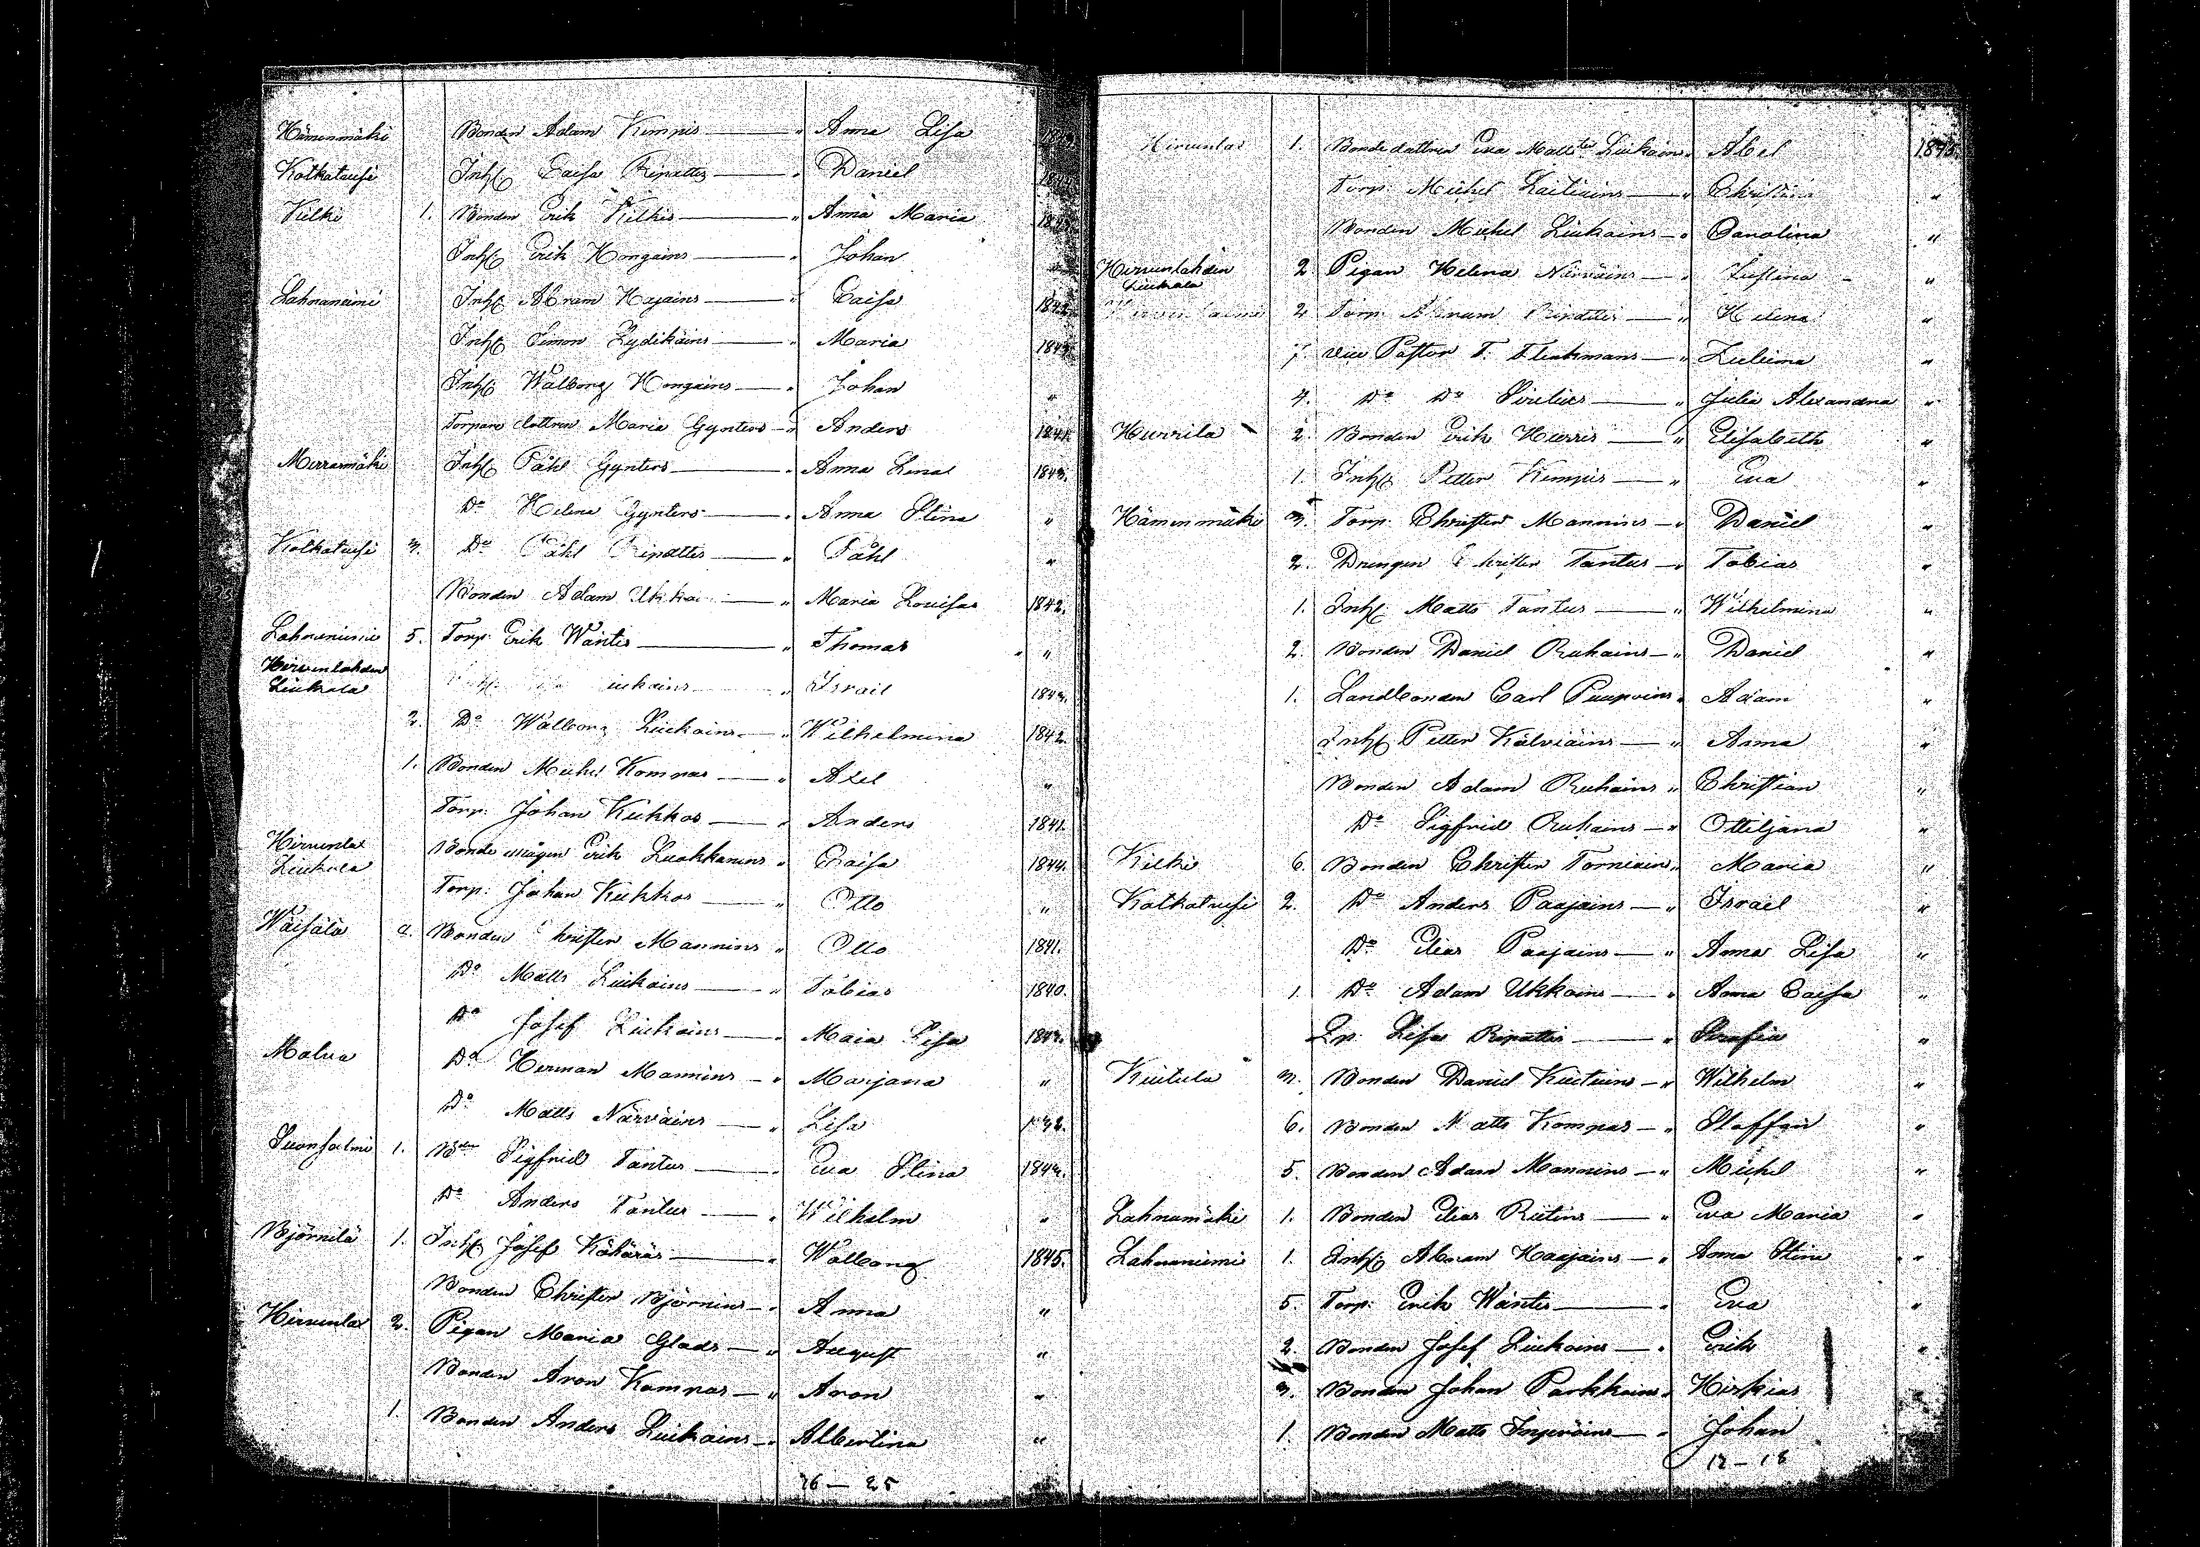 Hämenmäki Bonden Adam Kimpis — " Anna Lisa
Kotkatnisi Inhs Caisa Ripattis — " Daniel
Kilki 1. Bonden Erik Kilkis — " Anna Maria
Inhs Erik Hongains — " Johan
Lahnaniemi Inhs Abram Hajains — " Caisa 1842.
Inhs Simon Lydikäins — " Maria 1843.
Inhs Walborg Hongains — " Johan "
Torpare dottren Maria Gynters — " Anders 1841.
Inhs Påhl Gynters — " Anna Lena 1843.
Do Helena Gynters — " Anna Stina "
Kotkatnisi 3. Do Påhl Ripattis — " Påhl "
Bonden Adam — " Maria Lovisa 1842.
Lahnaniemi 5. Torp: Erik Wäntis — " Thomas "
Hirvenlahden
Liukala — " Israel
2. Do Walborg Liukains — " Wilhelmina 1842.
1. Bonden Michel Kompas — " Axel "
Torp: Johan Kukkos — " Anders 1841.
Hirvenlax
Liukala Bonde mågen Erik Luokkanens " Caisa 1844.
Torp: Johan Kukkos — " Otto "
Wäisälä 2. Bonden Christer Mannins " Otto 1841.
Do Matts Liukains — " Tobias 1840.
Do Josef Liukains — " Maia Lisa
Do Herman Mannins — " Marjana "
Do Matts Närväins — " Lisa
Suonsalmi 1. Bden Sigfrid Tantus — " Eva Stina 1844.
Do Anders Tantus — " Wilhelm "
Björnilä 1. Inhs Josef Kähäräs — " Walborg 1845.
Bonden Christer Björnins — " Anna "
Hirvenlax 2. Pigan Maria Glads — " August "
Bonden Aron Kompas — " Aron "
1. Bonden Anders Liukains — " Albertina "
26 — 25
Hirvenlax 1. Bonde dottren Eva Mattsdr Liukains " Abel 1845.
Torp: Michel Laitiains — " Christina "
Bonden Michel Liukains — " Carolina "
Hirvenlahden
Liukala 2 Pigan Helena Närväins — " Justina "
2 Torp: Abram Ripattis — " Helena "
7. vice Pastor F. Flinkmans — " Zulima "
4. Do Do — " Julia Alexandra "
Hurrila 2. Bonden Erik Hurris — " Elisabeth "
1. Inhs Petter Kimpis — " Eva "
Hämenmäki 3. Torp: Christer Mannins — " Daniel "
2. Drengen Christer Tantus — " Tobias "
1. Inhs Matts Tantus — " Wilhelmina "
2. Bonden Daniel Ruhains — " Daniel "
1. Landbonden Carl " Adam "
Inhs Petter Kälviäins — " Anna "
Bonden Adam Ruhains " Christian "
Do Sigfrid Ruhains — " Otteljana "
Kilki 6. Bonden Christer Torniain " Maria "
Kotkatnisi 2. Do Anders Paajains — " Israel "
Do Elias Paajains — " Anna Lisa "
1. Do Adam Ukkains — " Anna Caisa "
Lisa Ripattis — " "
Kiutula 3. Bonden Daniel Kiutuins — " Wilhelm "
6. Bonden Matts Kompas — " Staffan "
5. Bonden Adam Mannins — " Michel "
Lahnamäki 1. Bonden Elias — " Eva Maria "
Lahnaniemi 1. Inhs Abram Haajains — " Anna Stina "
5. Torp: Erik Wäntis — " Eva "
2. Bonden Josef Liukains — " Erik "
3. Bonden Johan Parkkains " Hiskias "
1. Bonden Matts — " Johan